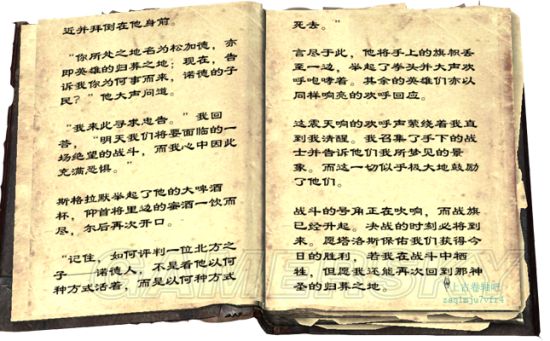 近并拜倒在他身前。
“你所处之地名为松加德,亦
即英雄的归葬之地;现在,告
诉我你为何事而来,诺德的子
民?”他大声问道。
“我来此寻求忠告。”我回
答,“明天我们将要面临的一
场绝望的战斗,而我心中因此
充满恐惧。”
斯格拉默举起了他的大啤酒
杯,仰首将里边的蜜酒一饮而
尽,尔后再次开口
“记住,如何评判一位北方之
子——诺德人,不是看他以何
种方式活着,而是以何种方式
死去。”
言尽于此,他将手上的旗帜丢
至一边,举起了拳头并大声欢
呼咆哮着。其余的英雄们亦以
同样响亮的欢呼回应。
这震天响的欢呼声萦绕着我直
到我清醒。我召集了手下的战
士并告诉他们我所梦见的景
象。而这一切似乎极大地鼓励
了他们。
战斗的号角正在吹响,而战旗
已经升起。决战的时刻必将到
来。愿塔洛斯保佑我们获得今
日的胜利,若我在战斗中牺
牲,但愿我还能再次回到那神
圣的归葬之地。
@上古卷轴吧
zaq1mju7vfr4
GAMERSKY